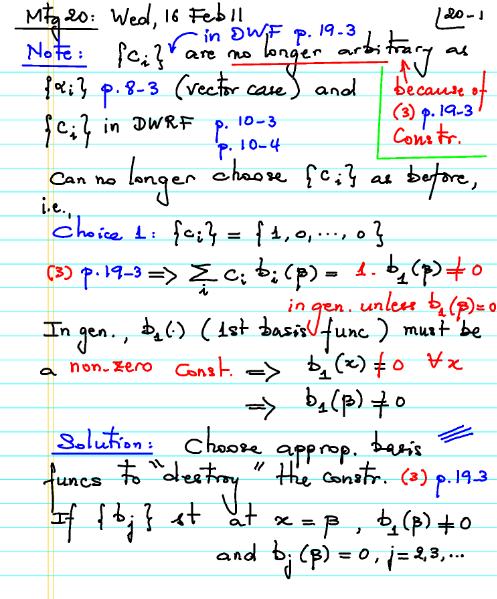 Mtg 20: Wed, 16 Feb 11
20-1
in DWF p. 19-3
Note: {c_i} are no longer arbitrary as
{α_i} p. 8-3 (vector case) and
{c_i} in DWRF p. 10-3
p. 10-4
because of
(3) p.19-3
Constr.
Can no longer choose {c_i} as before,
i.e.,
Choice 1: {c_i} = {1, 0, ..., 0}
(3) p.19-3 ⇒ ∑_i c_i b_i(β) = 1. b_1(β) ≠ 0
in gen. unless b_1(β)=0
In gen., b_1(.) (1st basis func) must be
a non-zero Const. ⇒ b_1(x) ≠ 0 ∀x
⇒ b_1(β) ≠ 0
Solution: Choose approp. basis
funcs to "destroy" the constr. (3) p.19-3
If {b_j} st at x = β, b_1(β) ≠ 0
and b_j(β) = 0, j=2,3,...